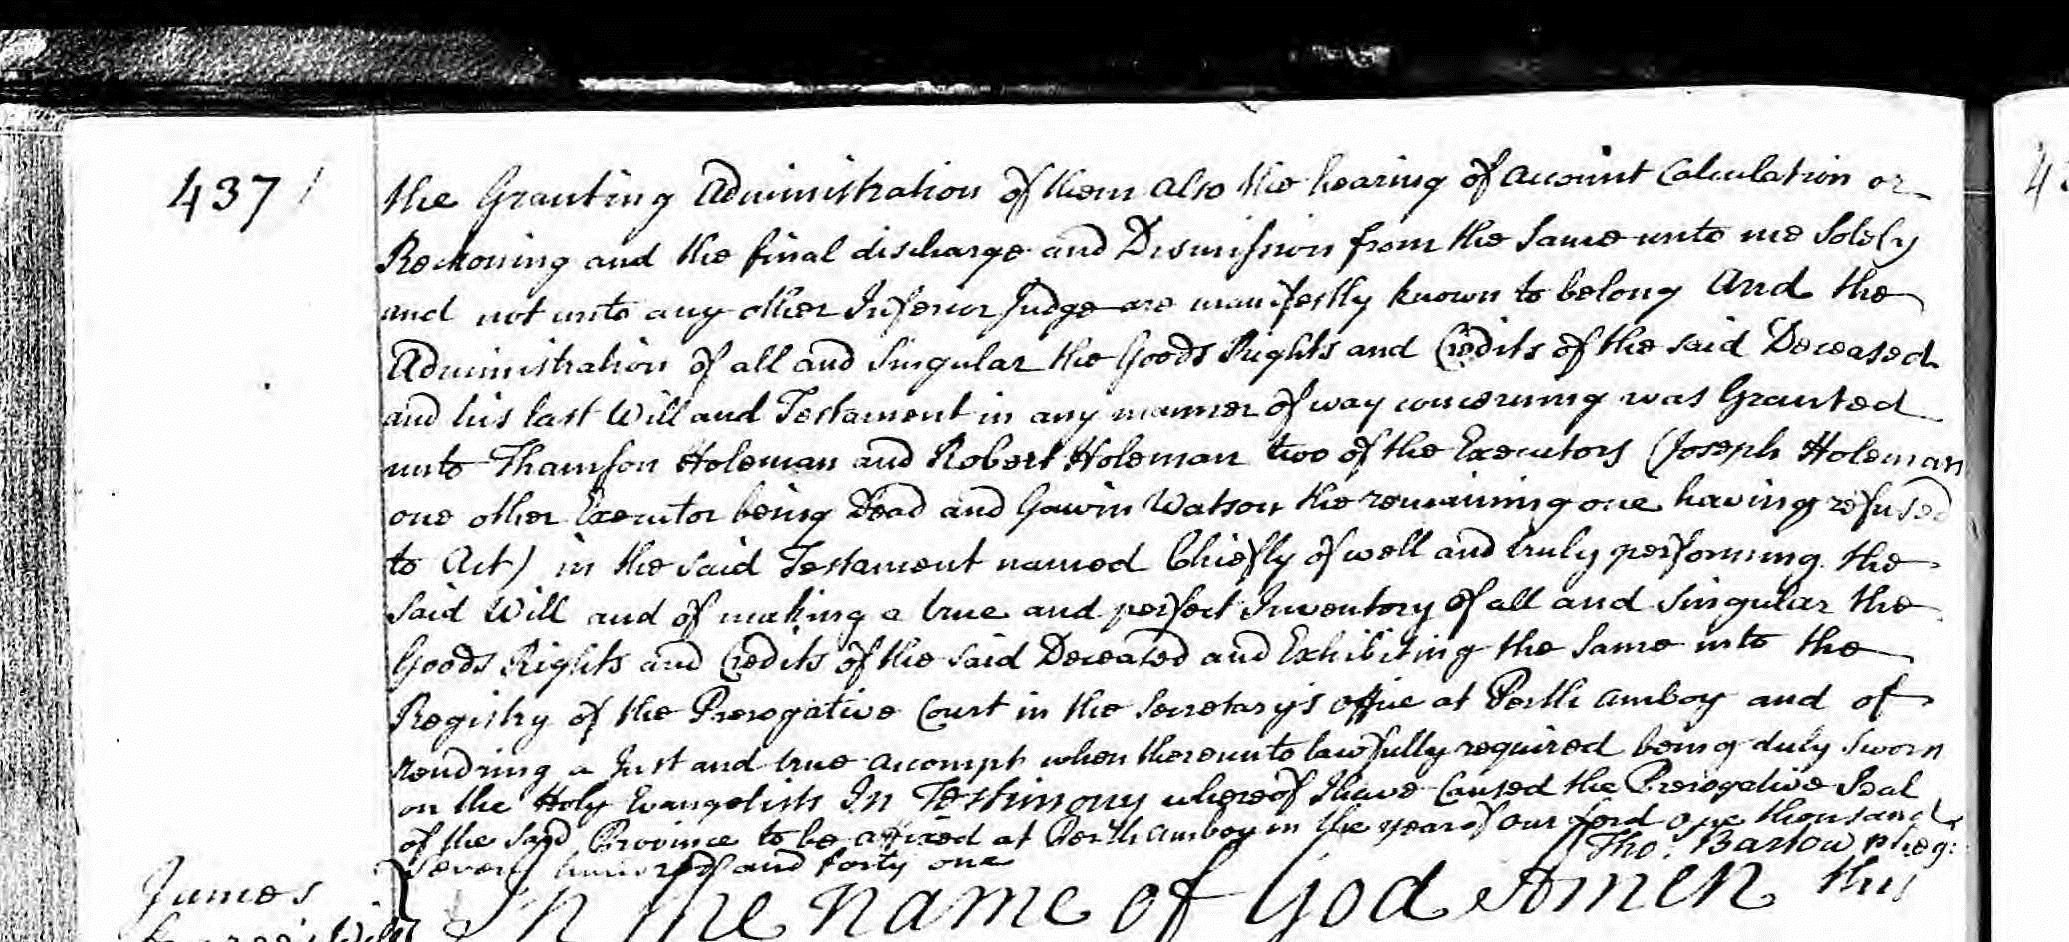 437
the Granting Administration of them also the hearing of account Calculation or
Reckoning and the final discharge and Dismission from the Same unto me Solely
and not unto any other Inferior Judge are manifestly known to belong And the
Administration of all and Singular the Goods Rights and Credits of the said Deceased
and his last Will and Testament in any manner of way concerning was Granted
unto Thamson Holeman and Robert Holeman two of the Executors (Joseph Holeman
one other Executor being Dead and Gawin Watson the remaining one having refused
to Act) in the said Testament named Chiefly of well and truly performing the
Said Will and of making a true and perfect Inventory of all and Singular the
Goods Rights and Credits of the said Deceased and Exhibiting the Same into the
Registry of the Prerogative Court in the Secretary's office at Perth amboy and of
rendring a Just and true accompt when thereunto lawfully required being duly Sworn
on the Holy Evangelists In Testimony whereof I have Caused the Prerogative Seal
of the Said Province to be affixed at Perth amboy in the year of our Lord one thousand
Seven hundred and forty one Tho: Bartow
James
Will
In the name of God Amen this